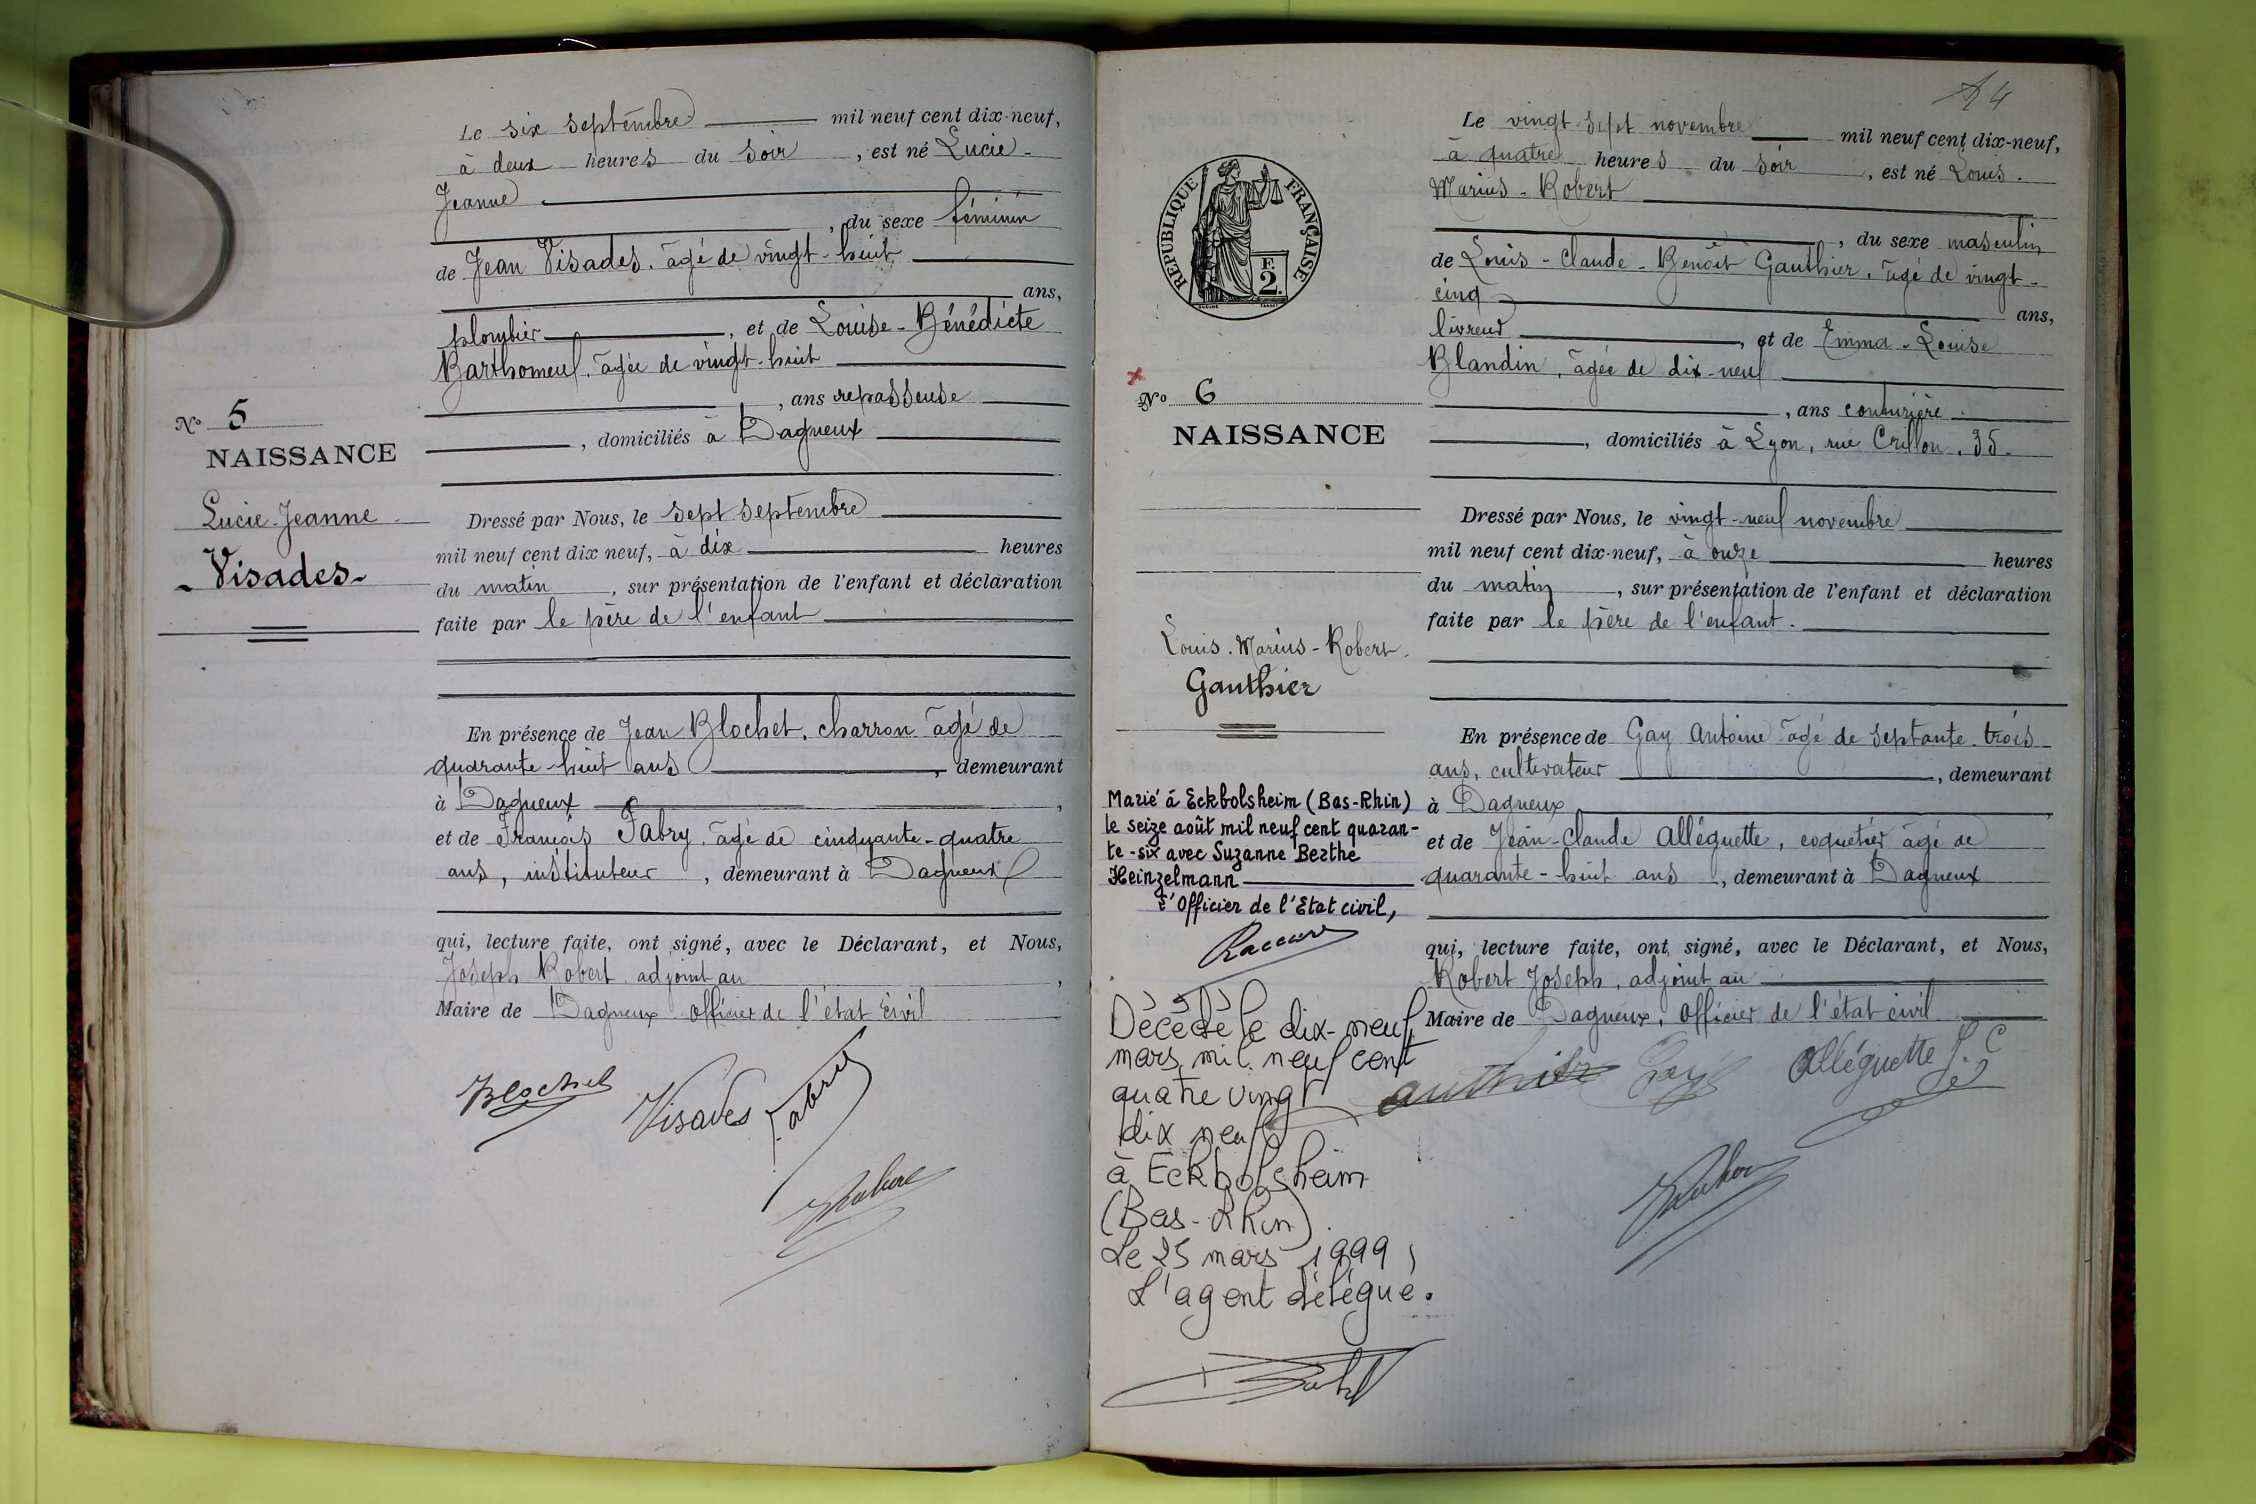 Le six septembre mil neuf cent dix-neuf,
à deux heures du soir, est né Lucie-
Jeanne
, du sexe féminin
de Jean Visades. âgé de vingt-huit
ans,
plombier, et de Louise-Bénédicte
Barthomeuf, âgée de vingt-huit
, ans repasseuse
, domiciliés à Dagneux
No 5
NAISSANCE
Lucie-Jeanne
-Visades-
Dressé par Nous, le sept septembre
mil neuf cent dix neuf, à dix heures
du matin, sur présentation de l'enfant et déclaration
faite par le père de l'enfant
En présence de Jean Blochet, charron âgé de
quarante-huit ans, demeurant
à Dagneux,
et de François Fabry, âgé de cinquante-quatre
ans, instituteur, demeurant à Dagneux
qui, lecture faite, ont signé, avec le Déclarant, et Nous,
Joseph Robert adjoint au,
Maire de Dagneux officier de l'état civil
Blochet
Visades
14
Le vingt-sept novembre mil neuf cent dix-neuf,
à quatre heures du soir, est né Louis-
Marius-Robert
, du sexe masculin
de Louis-Claude-Benoît Gauthier, âgé de vingt-
cinq ans,
livreur, et de Emma-Louise
Blandin, âgée de dix-neuf
, ans couturière
, domiciliés à Lyon, rue Crillon, 35.
RÉPUBLIQUE FRANÇAISE
F
2.
No 6
NAISSANCE
Louis-Marius-Robert
Gauthier
Dressé par Nous, le vingt-neuf novembre
mil neuf cent dix-neuf, à onze heures
du matin, sur présentation de l'enfant et déclaration
faite par le père de l'enfant.
En présence de Gay Antoine âgé de septante-trois
ans, cultivateur, demeurant
à Dagneux,
et de Jean-Claude Alléguette, coquetier âgé de
quarante-huit ans, demeurant à Dagneux
qui, lecture faite, ont signé, avec le Déclarant, et Nous,
Robert Joseph, adjoint au
Maire de Dagneux, officier de l'état civil
Gay
Alléguette J. C
Marié à Eckbolsheim (Bas-Rhin)
le seize août mil neuf cent quaran-
te-six avec Suzanne Berthe
Heinzelmann
L'Officier de l'Etat civil,
Décédé le dix-neuf
mars mil neuf cent
quatre vingt
dix neuf
à Eckbolsheim
(Bas-Rhin)
Le 25 mars 1999,
L'agent délégué.